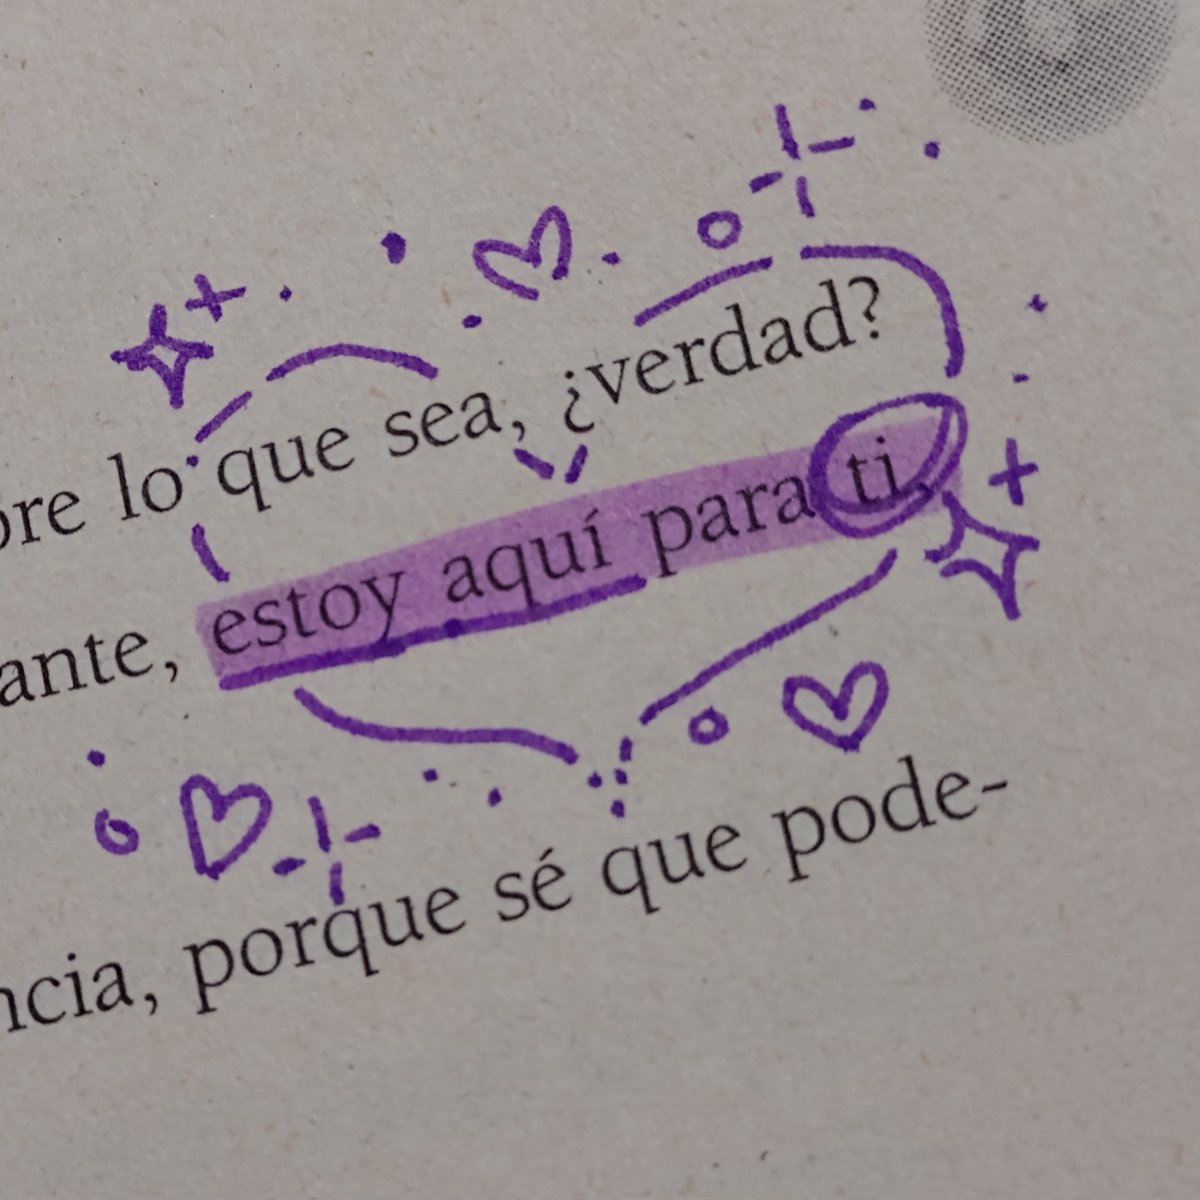 lo que sea, ¿verdad?
estoy aquí para ti.
porque sé que pode-